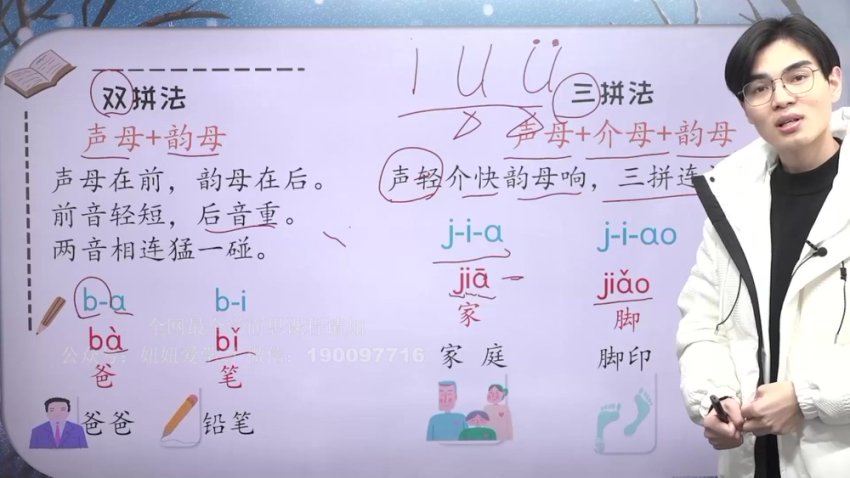 双拼法
声母+韵母
声母在前，韵母在后。
前音轻短，后音重。
两音相连猛一碰。
b-ɑ b-i
bà bǐ
爸 笔
爸爸 铅笔
i u ü
三拼法
声母+介母+韵母
声轻介快韵母响，三拼连
j-i-ɑ j-i-ɑo
jiā jiǎo
家 脚
家庭 脚印
190097716